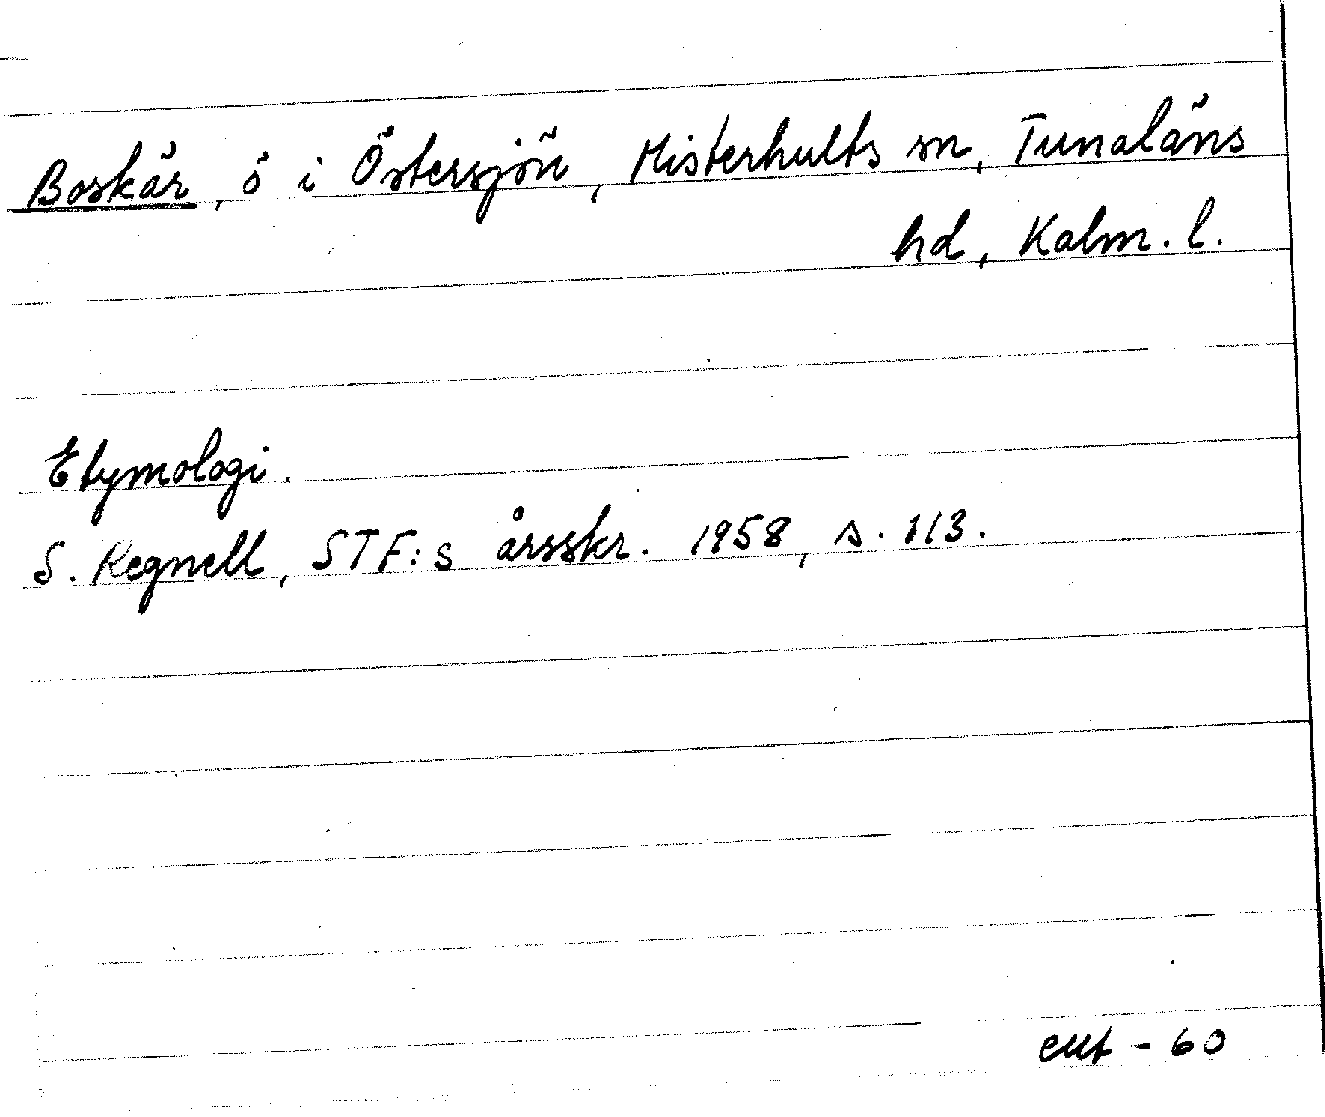 Boskär, ö i Östersjön, Misterhults sn, Tunaläns
hd, Kalm. l.
Etymologi.
S. Regnell, STF:s årsskr. 1958, s. 113.
- 60